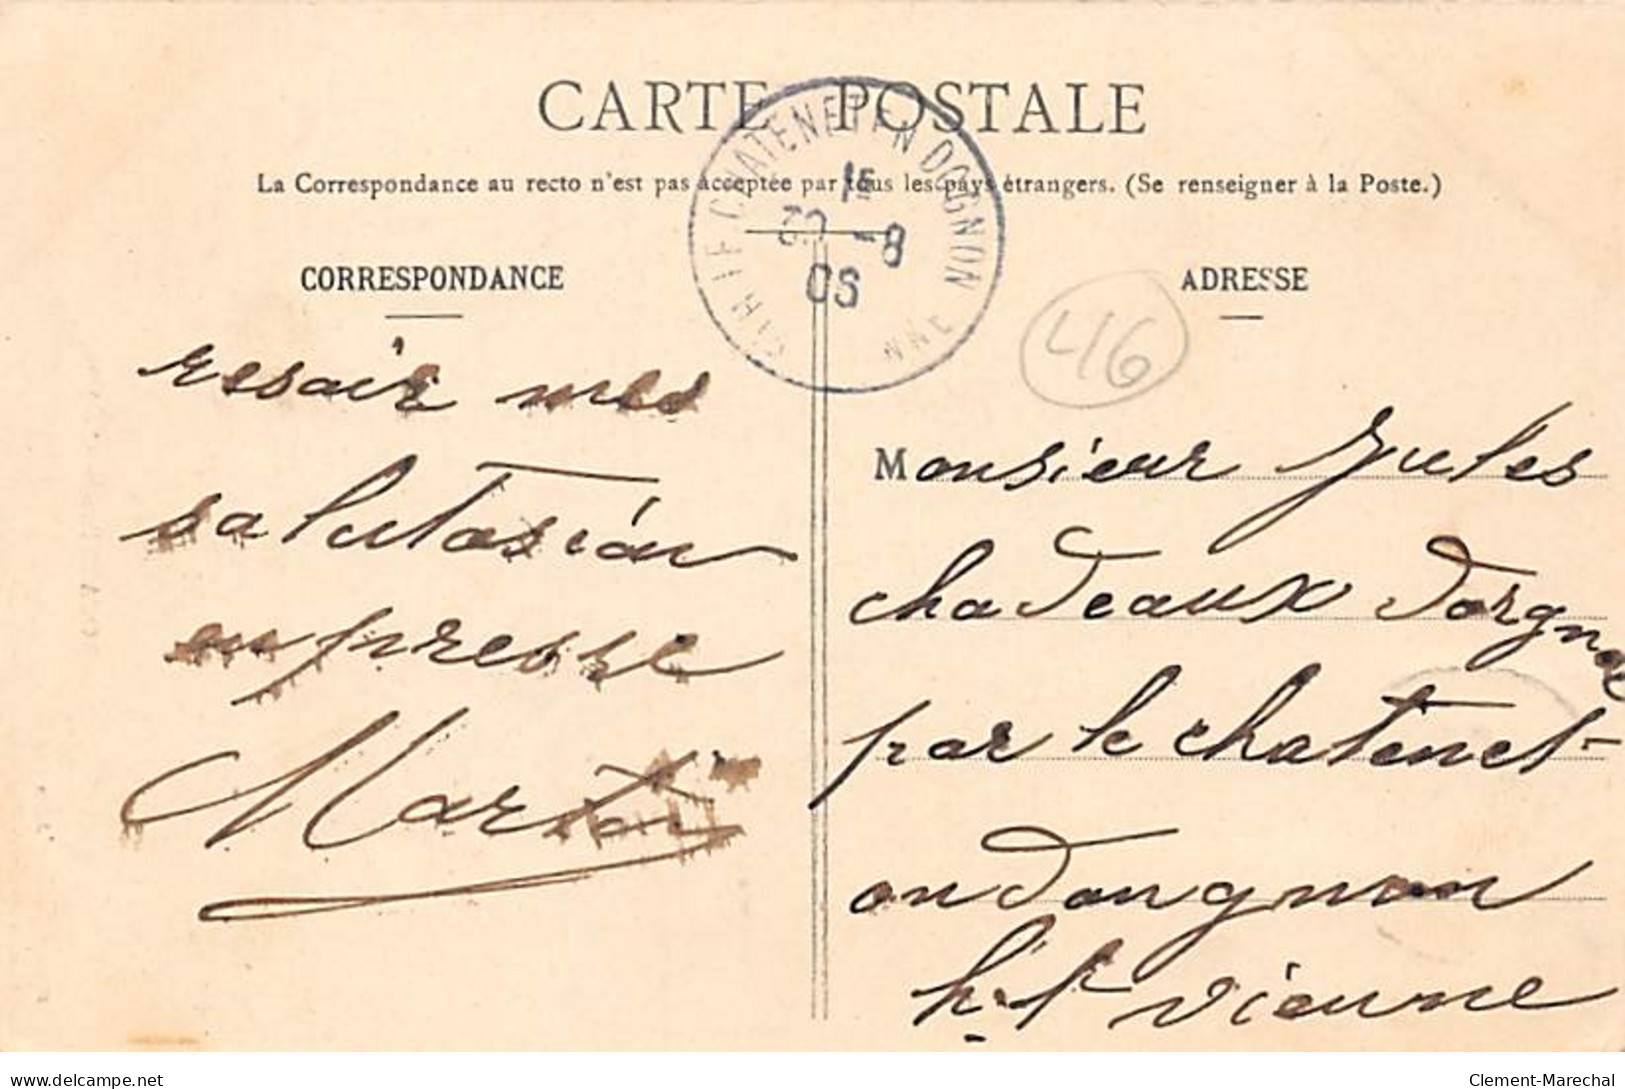 CARTE POSTALE
La Correspondance au recto n'est pas acceptée par tous les pays étrangers. (Se renseigner à la Poste.)
LE CHATENET EN DOGNON
15
30 -8
06
CORRESPONDANCE
ADRESSE
416
resair mes
salutasion
enpresse
Martin
Monsieur Jules
chadeaux
par le chatenet-
en dongnon
hte vienne
delcampe.net
Clement-Marechal